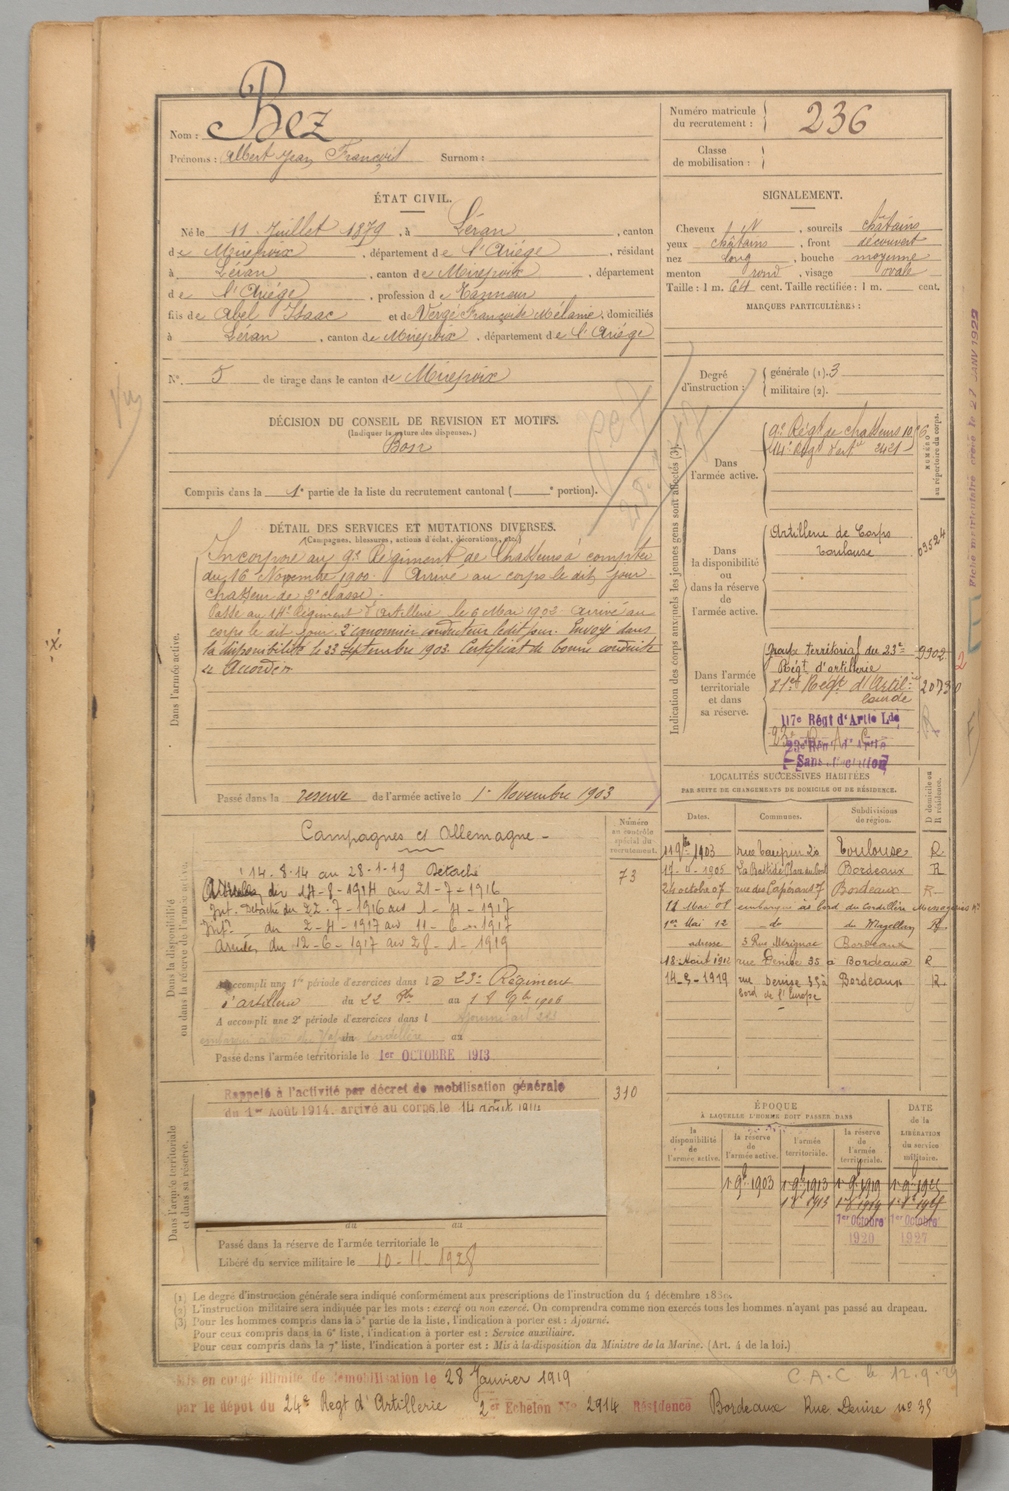 Nom : Bez
Prénoms : Albert Jean François Surnom :
Numéro matricule
du recrutement : 236
Classe
de mobilisation :
ÉTAT CIVIL.
Né le 11 Juillet 1879, à Léran, canton
de Mirepoix, département de l'Ariége, résidant
à Léran, canton de Mirepoix, département
de l'Ariége, profession de Tanneur
fils de Abel Isaac et de Vergé Françoise Mélanie, domiciliés
à Léran, canton de Mirepoix, département de l'Ariége
N° 5 de tirage dans le canton de Mirepoix
SIGNALEMENT.
Cheveux, sourcils chatains
yeux châtains, front découvert
nez long, bouche moyenne
menton rond, visage ovale
Taille : 1 m. 64 cent. Taille rectifiée : 1 m. cent.
MARQUES PARTICULIÈRES :
Degré
d'instruction :
générale (1). 3
militaire (2).
DÉCISION DU CONSEIL DE REVISION ET MOTIFS.
(Indiquer la nature des dispenses.)
Bon
Compris dans la 1e partie de la liste du recrutement cantonal ( e portion).
DÉTAIL DES SERVICES ET MUTATIONS DIVERSES.
(Campagnes, blessures, actions d'éclat, décorations, etc.)
Dans l'armée active.
Incorporé au 9e Régiment de Chasseurs à compter
du 16 Novembre 1900. Arrivé au corps le dit jour
chasseur de 2e classe.
Passé au 14e Régiment d'Artillerie le 6 Mai 1903 arrivé au
corps le dit jour. 2e canonnier conducteur ledit jour. Envoyé dans
la disponibilité le 23 Septembre 1903. Certificat de bonne conduite
Accordé
Passé dans la reserve de l'armée active le 1er Novembre 1903
Indication des corps auxquels les jeunes gens sont affectés (3).
NUMÉRO
au répertoire du corps.
Dans
l'armée active.
9e Régt de chasseurs
14e Regt d'art 2421
Dans
la disponibilité
ou
dans la réserve
de
l'armée active.
Artillerie de Corps
Toulouse
03524
Dans l'armée
territoriale
et dans
sa réserve.
Groupe territorial du 23e 9902
Régt d'artillerie
Régt d'Artil
lourde
117e Régt d'Artie Lde
Sans affectation
Fiche matriculaire créée le 27 JANV 1922
LOCALITÉS SUCCESSIVES HABITÉES
PAR SUITE DE CHANGEMENTS DE DOMICILE OU DE RÉSIDENCE.
Dates. Communes. Subdivisions de région. D domicile ou R résidence.
1903 rue Taupin 20 Toulouse R
1905 Bordeaux R
24 octob 07 rue des Capérans 7 Bordeaux R
embarqué à bord du Cordillère Messageries
1er Mai 12 do du Magellan R
adresse 3 Rue Mérignac Bordeaux
18 Aout 1912 rue Denise 35 à Bordeaux R
14-3-1919 rue Denise 35 à Bordeaux R
bord de l'Europe
Dans la disponibilité
ou dans la réserve de l'armée active.
Numéro
au contrôle
spécial du
recrutement.
73
Campagnes c/ Allemagne
14-8-14 au 28-1-19 Détaché
Armées du 14-8-1914 au 21-7-1916
Int. Détaché du 22-7-1916 au 1-4-1917
Int. du 2-4-1917 au 11-6-1917
Armées du 12-6-1917 au 28-1-1919
A accompli une 1re période d'exercices dans le 23e Régiment
d'artillerie du 22 au 18 1906
A accompli une 2e période d'exercices dans l
du au
Passé dans l'armée territoriale le 1er OCTOBRE 1913
Dans l'armée territoriale
et dans sa réserve.
Rappelé à l'activité par décret de mobilisation générale
du 1er Août 1914, arrivé au corps le 14 août 1914
310
du au
Passé dans la réserve de l'armée territoriale le
Libéré du service militaire le 10-11-1928
ÉPOQUE
À LAQUELLE L'HOMME DOIT PASSER DANS
DATE
de la
LIBÉRATION
du service
militaire.
la disponibilité de l'armée active.
la réserve de l'armée active.
l'armée territoriale.
la réserve de l'armée territoriale.
1er 9bre 1903 1er 9bre 1913 1er 9bre 1919
1er Octobre 1er Octobre
1920 1927
(1) Le degré d'instruction générale sera indiqué conformément aux prescriptions de l'instruction du 4 décembre 1889.
(2) L'instruction militaire sera indiquée par les mots : exercé ou non exercé. On comprendra comme non exercés tous les hommes n'ayant pas passé au drapeau.
(3) Pour les hommes compris dans la 5e partie de la liste, l'indication à porter est : Ajourné.
Pour ceux compris dans la 6e liste, l'indication à porter est : Service auxiliaire.
Pour ceux compris dans la 7e liste, l'indication à porter est : Mis à la disposition du Ministre de la Marine. (Art. 4 de la loi.)
Mis en congé illimité de démobilisation le 28 Janvier 1919
C.A.C le 12.9.29
par le dépot du 24e Regt d'Artillerie 2er Echelon No 2914 Résidence Bordeaux Rue Denise no 35